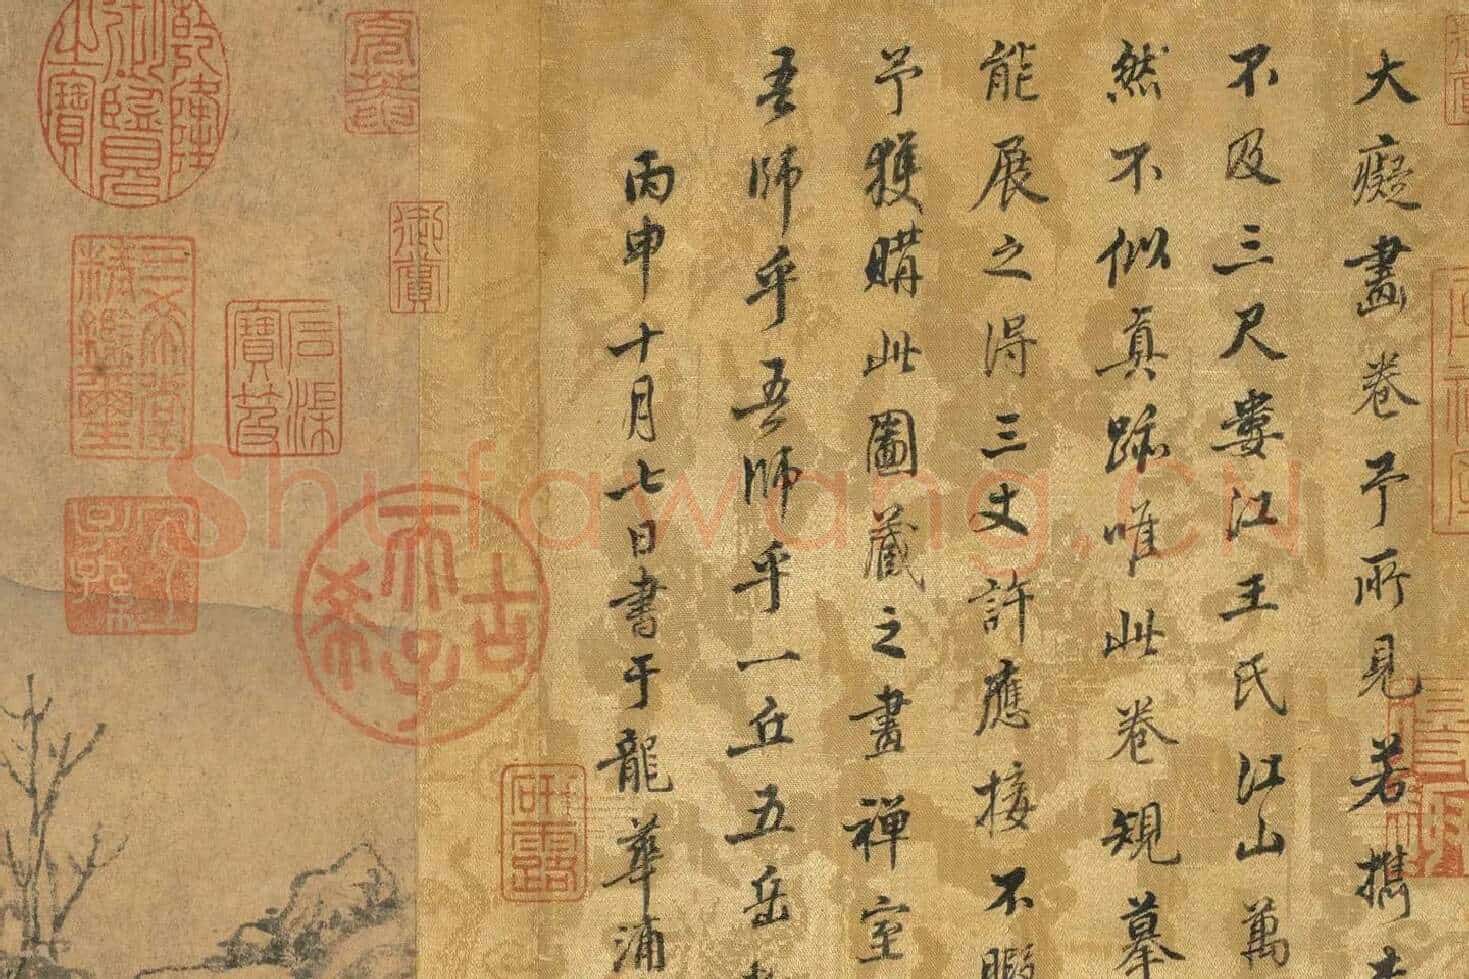 大癡畫卷予所見若檇
不及三尺婁江王氏江山萬
然不似真跡唯此卷規摹
能展之得三丈許應接不暇
予獲購此圖藏之畫禪室
吾師乎吾師乎一丘五岳
丙申十月七日書于龍華浦
乾隆御覽之寶
御賞
三希堂精鑑璽
石渠寶笈
宜子孫
古希天子
研露
Shufawang.CN